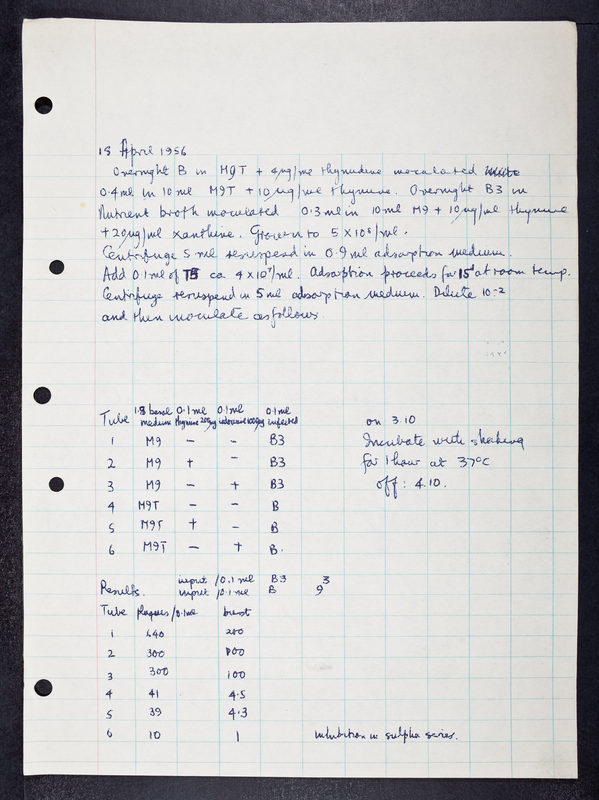 18 April 1956
Overnight B in M9T + 4µg/ml thymidine inoculated
0.4ml in 10 ml M9T + 10 µg/ml thymine. Overnight B3 in
Nutrient broth inoculated 0.3 ml in 10ml M9 + 10µg/ml thymine
+ 20µg/ml xanthine. Grown to 5 x 10⁸/ml.
Centrifuge 5 ml resuspend in 0.9 ml adsorption medium.
Add 0.1 ml of T5 ca 4 x 10⁷/ml. Adsorption proceeds for 15' at room temp.
Centrifuge resuspend in 5 ml adsorption medium. Dilute 10-2
and then inoculate as follows.
Tube 1.8 basal medium 0.1 ml thymine 0.1 ml 0.1 ml infected
1 M9 − − B3
2 M9 + − B3
3 M9 − + B3
4 M9T − − B
5 M9T + − B
6 M9T − + B.
on 3.10
Incubate with shaking
for 1 hour at 37°C
off: 4.10.
Results. input /0.1 ml B3 3
input /0.1 ml B 9
Tube plaques /0.1ml burst
1 640 200
2 300 100
3 300 100
4 41 4.5
5 39 4.3
6 10 1 inhibition in sulpha series.